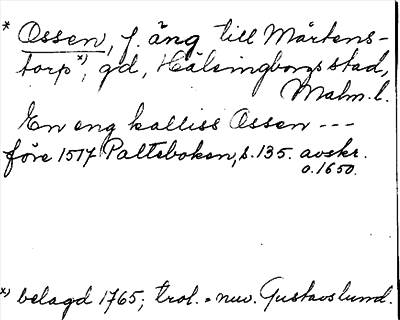 * Ossen, f. äng till Mårtens-
torp x), gd, Hälsingborgs stad,
Malm. l.
En eng kalliss Ossen ---
före 1517 Palteboken, s. 135. avskr.
o. 1650.
x) belagd 1765; trol. = nuv. Gustavslund.